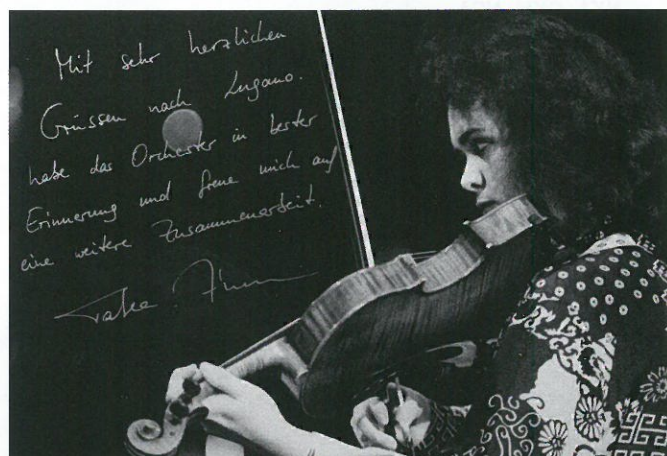 Mit sehr herzlichen
Grüssen nach Lugano.
habe das Orchester in bester
Erinnerung und freue mich auf
eine weitere Zusammenarbeit.